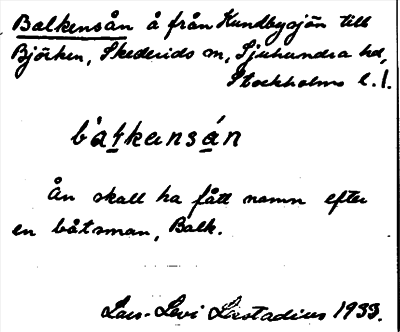 Balkensån å från Kundbysjön till
Björken, Skederids sn, Sjuhundra hd,
Stockholms l.
bàłkensán
Ån skall ha fått namn efter
en båtsman, Balk.
Lars-Levi Læstadius 1933.